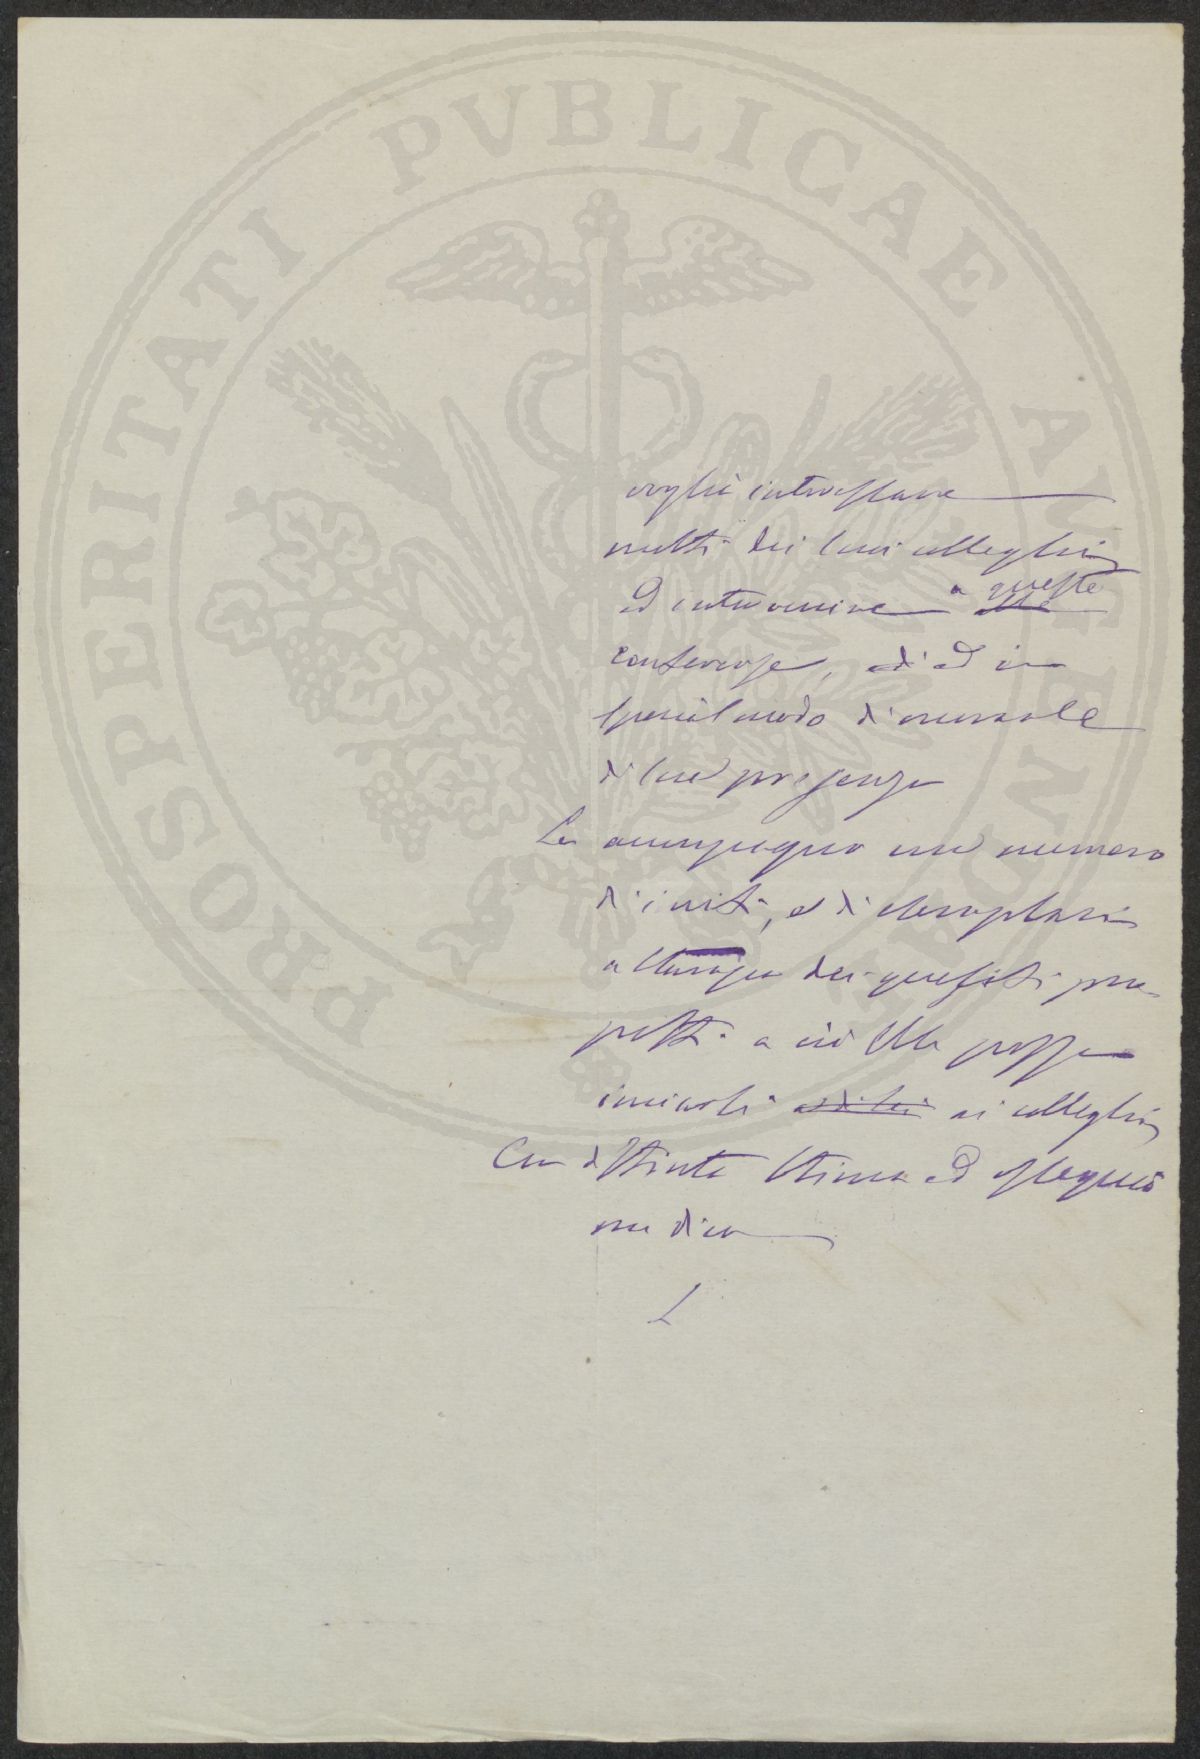 PROSPERITATI PVBLICAE AVGENDAE
voglia interessare
molti dei suoi colleghi
ed intervenire a queste
conferenze, ed in
special modo
di sua presenza
Le accompagno un numero
d'inviti, e di
dei quesiti pro-
posti a ciò Ella possa
inviarli ai colleghi
Con distinta stima ed ossequio
mi dico
L